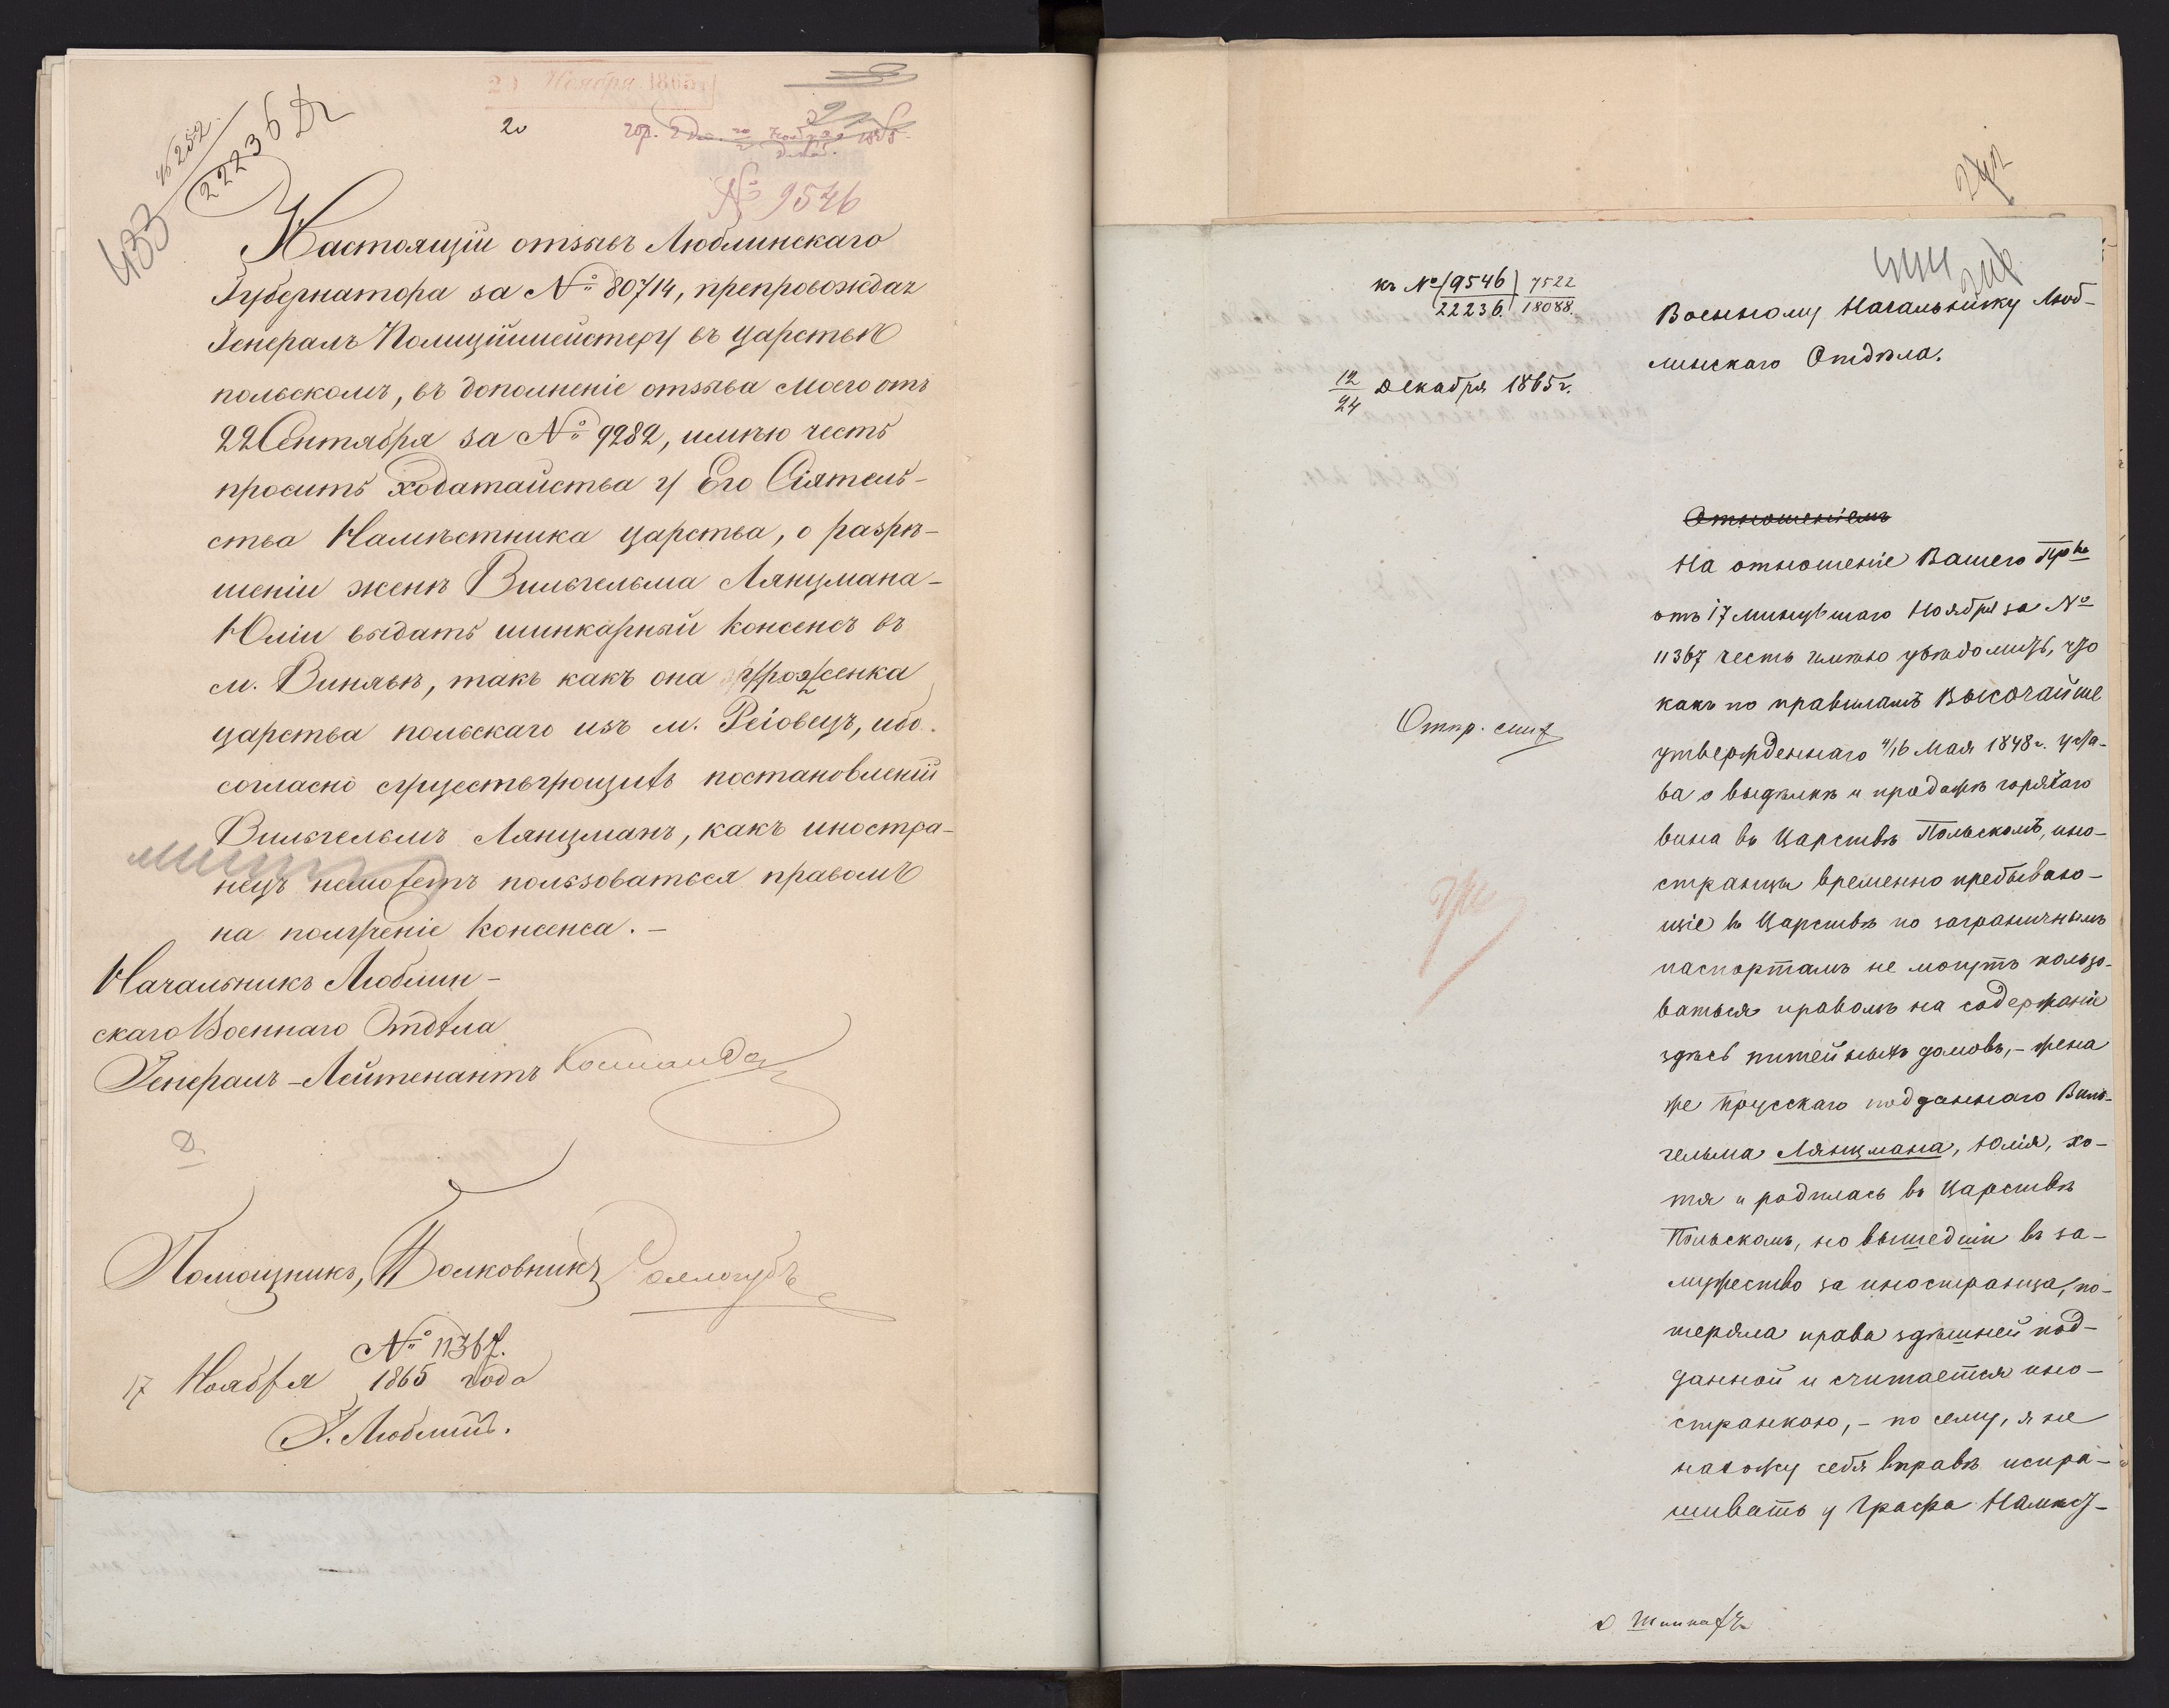 20 Ноября 1865
20
№ 9546
433
22236
Настоящій отзывъ Люблинскаго
Губернатора за № 80714, препровождая
Генералъ Полиціймейстеру въ царствѣ
польскомъ, въ дополненіе отзыва моего отъ
22 Сентября за № 9282, имѣю честь
просить ходатайства у Его Сіятель-
ства Намѣстника царства, о разрѣ-
шеніи женѣ Вильгельма Лянцмана-
Юліи выдать шинкарный консенсъ въ
м. Винявѣ, такъ какъ она уроженка
царства польскаго изъ м. Рейовецъ, ибо
согласно существующихъ постановленій
Вильгельмъ Лянцманъ, какъ иностра-
нецъ неможетъ пользоваться правомъ
на полученіе консенса. -
Начальникъ Люблин-
скаго Военнаго Отдѣла
Генералъ-Лейтенантъ
Помощникъ, Полковникъ
№ 11367.
17 Ноября 1865 года
Г. Люблинъ.
къ № 9546 7522
22236 18088.
12/24 Декабря 1865 г.
Военному Начальнику Люб-
линскаго Отдѣла.
Отношеніемъ
На отношеніе Вашего Пр-ва
отъ 17 минувшаго Ноября за №
11367 честь имѣю увѣдомить, что
какъ по правиламъ Высочайше
утвержденнаго 4/16 Мая 1848 г. уста-
ва о выдѣлкѣ и продажѣ горячаго
вина въ Царствѣ Польскомъ, ино-
странцы временно пребываю-
щіе въ Царствѣ по заграничнымъ
паспортамъ не могутъ пользо-
ваться правомъ на содержаніе
здѣсь питейныхъ домовъ, - жена
же прусскаго подданнаго Виль-
гельма Лянцмана, Юлія, хо-
тя и родилась въ Царствѣ
Польскомъ, но вышедши въ за-
мужество за иностранца, по-
теряла права здѣшней под-
данной и считается ино-
странкою, - по сему, я не
нахожу себя вправѣ испра-
шивать у Графа Намѣст-
Отпр.